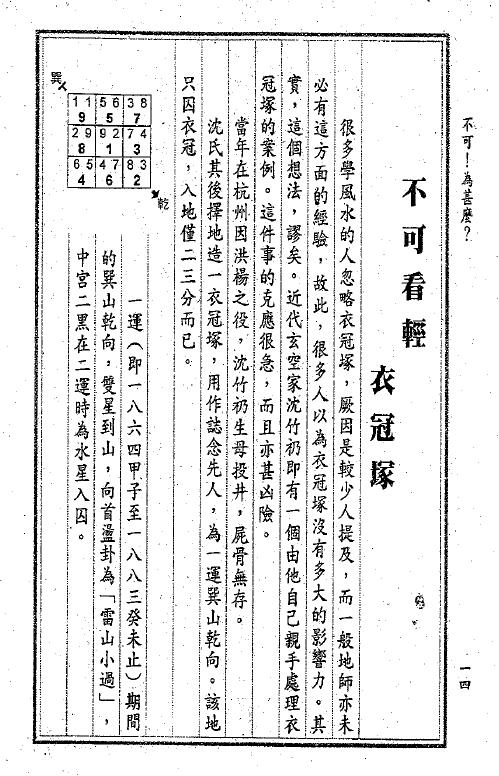 不可！為甚麼？
一四
不可看輕
衣冠塚
很多學風水的人忽略衣冠塚，厥因是較少人提及，而一般地師亦未
必有這方面的經驗，故此，很多人以為衣冠塚沒有多大的影響力。其
實，這個想法，謬矣。近代玄空家沈竹礽即有一個由他自己親手處理衣
冠塚的案例。這件事的克應很急，而且亦甚凶險。
當年在杭州因洪楊之役，沈竹礽生母投井，屍骨無存。
沈氏其後擇地造一衣冠塚，用作誌念先人，為一運巽山乾向。該地
只囚衣冠，入地僅二三分而已。
巽
1 1 5 6 3 8
9 5 7
2 9 9 2 7 4
8 1 3
6 5 4 7 8 3
4 6 2
乾
一運（即一八六四甲子至一八八三癸未止）期間
的巽山乾向，雙星到山，向首盪卦為「雷山小過」，
中宮二黑在二運時為水星入囚。